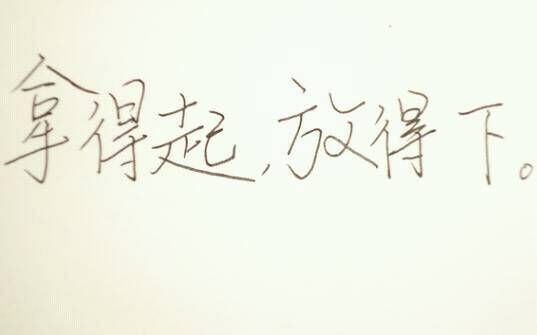 拿得起,放得下。